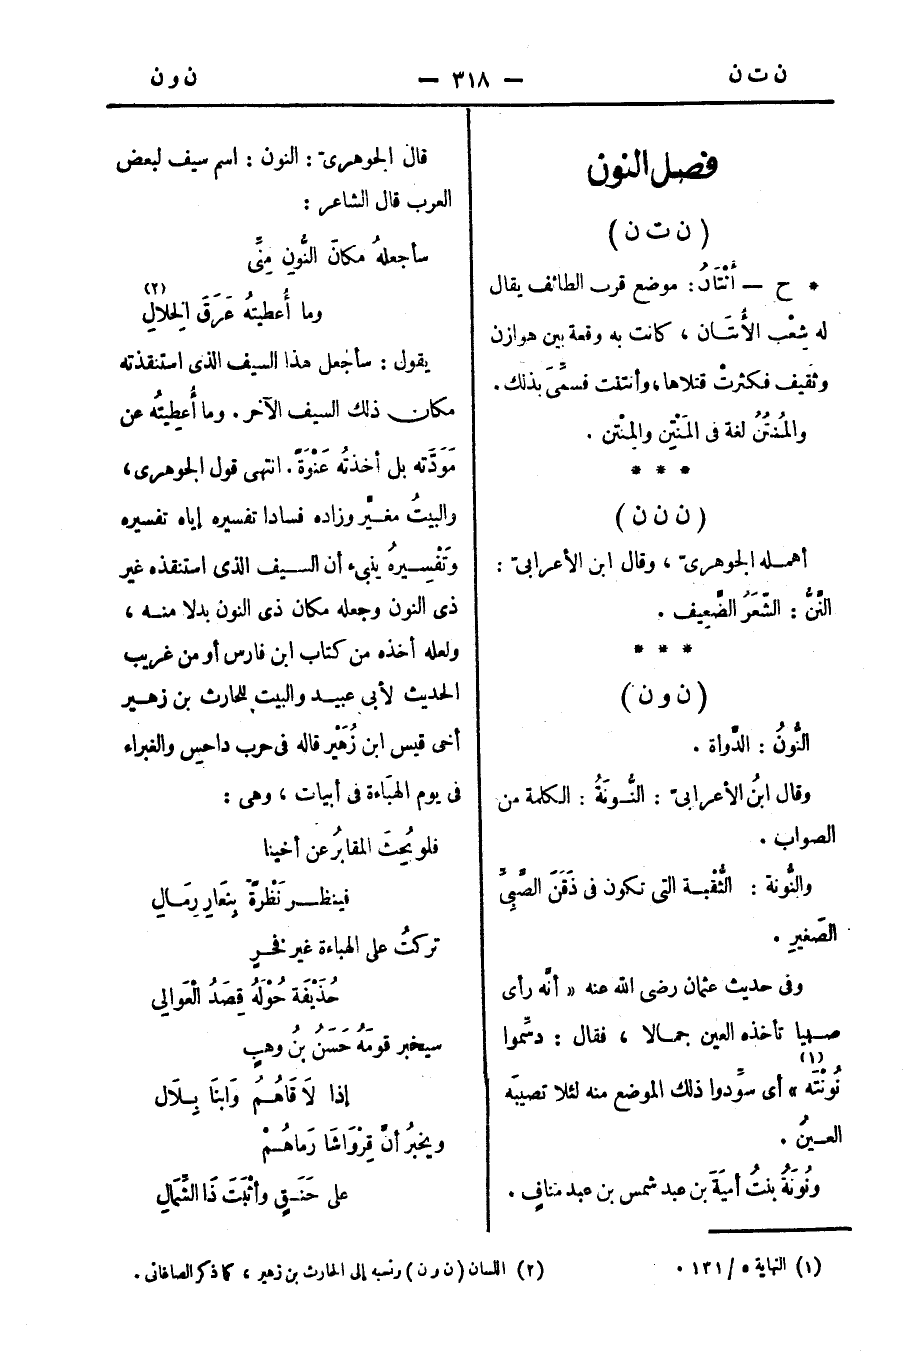 ن ت ن
— ٣١٨ —
ن و ن
فصل النون
(ن ت ن)
* ح — أَنْتَانُ: موضع قرب الطائف يقال
له شِعْب الأَنتَان ، كانت به وقعة بين هوازن
وثَقيف فكثرتْ قتلاها، وأنتنت فسمِّىَ بذلك.
والمُنتُنُ لغة فى المَنْتِن والمِنْتن .
* * *
(ن ن ن)
أهمله الجوهرىّ ، وقال ابن الأعرابىّ :
النَّنُّ : الشَّعَرُ الضَّعِيف .
* * *
(ن و ن)
النُّونُ : الدَّواة .
وقال ابنُ الأعرابىّ : النُّونَةُ : الكلمة من
الصواب .
والنُّونة : الثُّقْبة التى تكون فى ذَقَنَ الصَّبِىِّ
الصَّغيرِ .
وفى حديث عثمان رضى الله عنه « أنَّه رأى
صبيا تأخذه العين جمالا ، فقال : دسِّموا
نُونْتَه (١) » أى سوِّدوا ذلك الموضع منه لئلا تصيبَه
العينُ .
ونُونَةُ بنتُ أميَةَ بن عبد شمس بن عبد منافٍ .
(١) النهاية ٥ / ١٣١ .
قال الجوهرىّ : النون : اسم سيف لبعض
العرب قال الشاعر :
سأجعلهُ مكانَ النُّونِ مِنِّى
وما أُعطيتهُ عَرَقَ الخِلالِ (٢)
يقول : سأجعل هذا السيف الذى استنقذته
مكان ذلك السيف الآخر . وما أُعطيتُه عن
مَوَدَّته بل أخذتُه عَنْوَةً . انتهى قول الجوهرى ،
والبيتُ مغيَّر وزاده فسادا تفسيره إياه تفسيره
وتَفْسِيرهُ ينبىء أن السيف الذى استنقذه غير
ذى النون وجعله مكان ذى النون بدلا منه ،
ولعله أخذه من كتاب ابن فارس أو من غريب
الحديث لأبى عبيد والبيت للحارث بن زهير
أخى قيس ابن زُهَيْر قاله فى حرب داحس والغبراء
فى يوم الهَبَاءة فى أبيات ، وهى :
فلو بُحِثَ المقابرُ عن أخينا
فينظر نَظْرةً بِنَعَارِ رِمَالِ
تركتُ على الهباءة غير فخرٍ
حُذَيْفَة حُوْلَهُ قِصَدُ الْعَوالِى
سيخبر قومَهُ حَسَنُ بنُ وهبٍ
إذا لَاقَاهُمُ وَابنَا بِلَال
ويخبرُ أنَّ قِرْوَاشَا رَماهُمْ
على حَنَقٍ وأثْبَتَ ذَا الشَّمَالِ
(٢) اللسان (ن و ن) ونسبه إلى الحارث بن زهير ، كما ذكر الصاغانى .